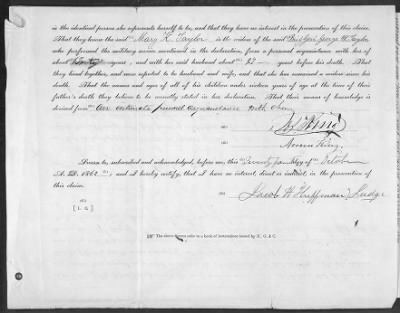 is the identical person she represents herself to be, and that they have no interest in the prosecution of this claim.
That they know the said Mary K. Taylor is the widow of the said Brig Gen George W. Taylor
who performed the military service mentioned in the declaration, from a personal acquaintance with her of
about Twenty years, and with said husband about years before his death. That
they lived together, and were reputed to be husband and wife, and that she has remained a widow since his
death. That the names and ages of all his children under sixteen years of age at the time of their
father's death they believe to be correctly stated in her declaration. That their means of knowledge is
derived from an intimate personal acquaintance with them
King
King.
Sworn to, subscribed and acknowledged, before me, this day of October
A. D. 1862, and I hereby certify, that I have no interest, direct or indirect, in the prosecution of
this claim.
Jacob H Huffman Judge
[L S]
The above figures refer to a book of instructions issued by